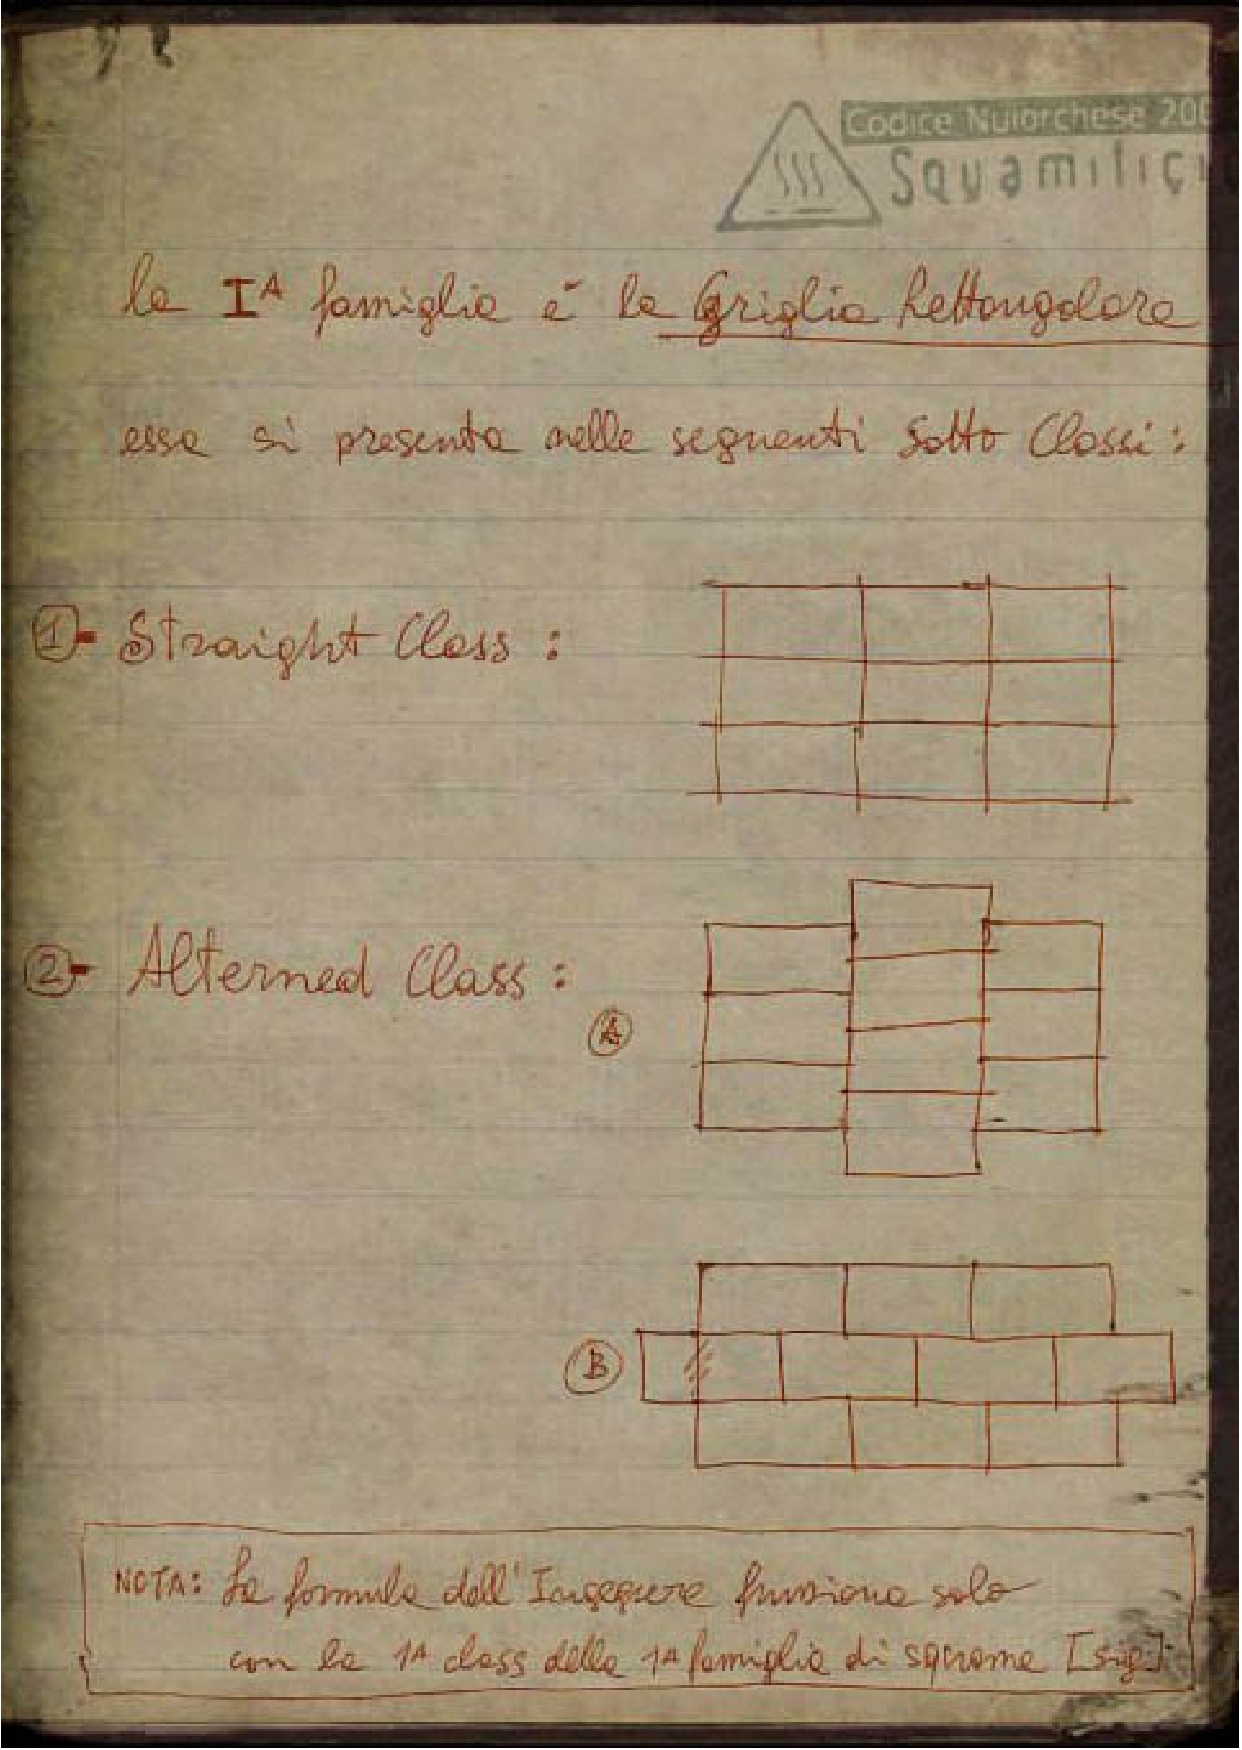 Codice Nuiorchese 200
Squamiliçi
la Iᴬ famiglia è la Griglia Rettangolare
essa si presenta nelle seguenti Sotto Classi:
1- Straight Class:
2- Alterned Class:
A
B
NOTA: La formula dell'Ingegnere funziona solo
con la 1ᴬ class della 1ᴬ famiglia di squame [sig]